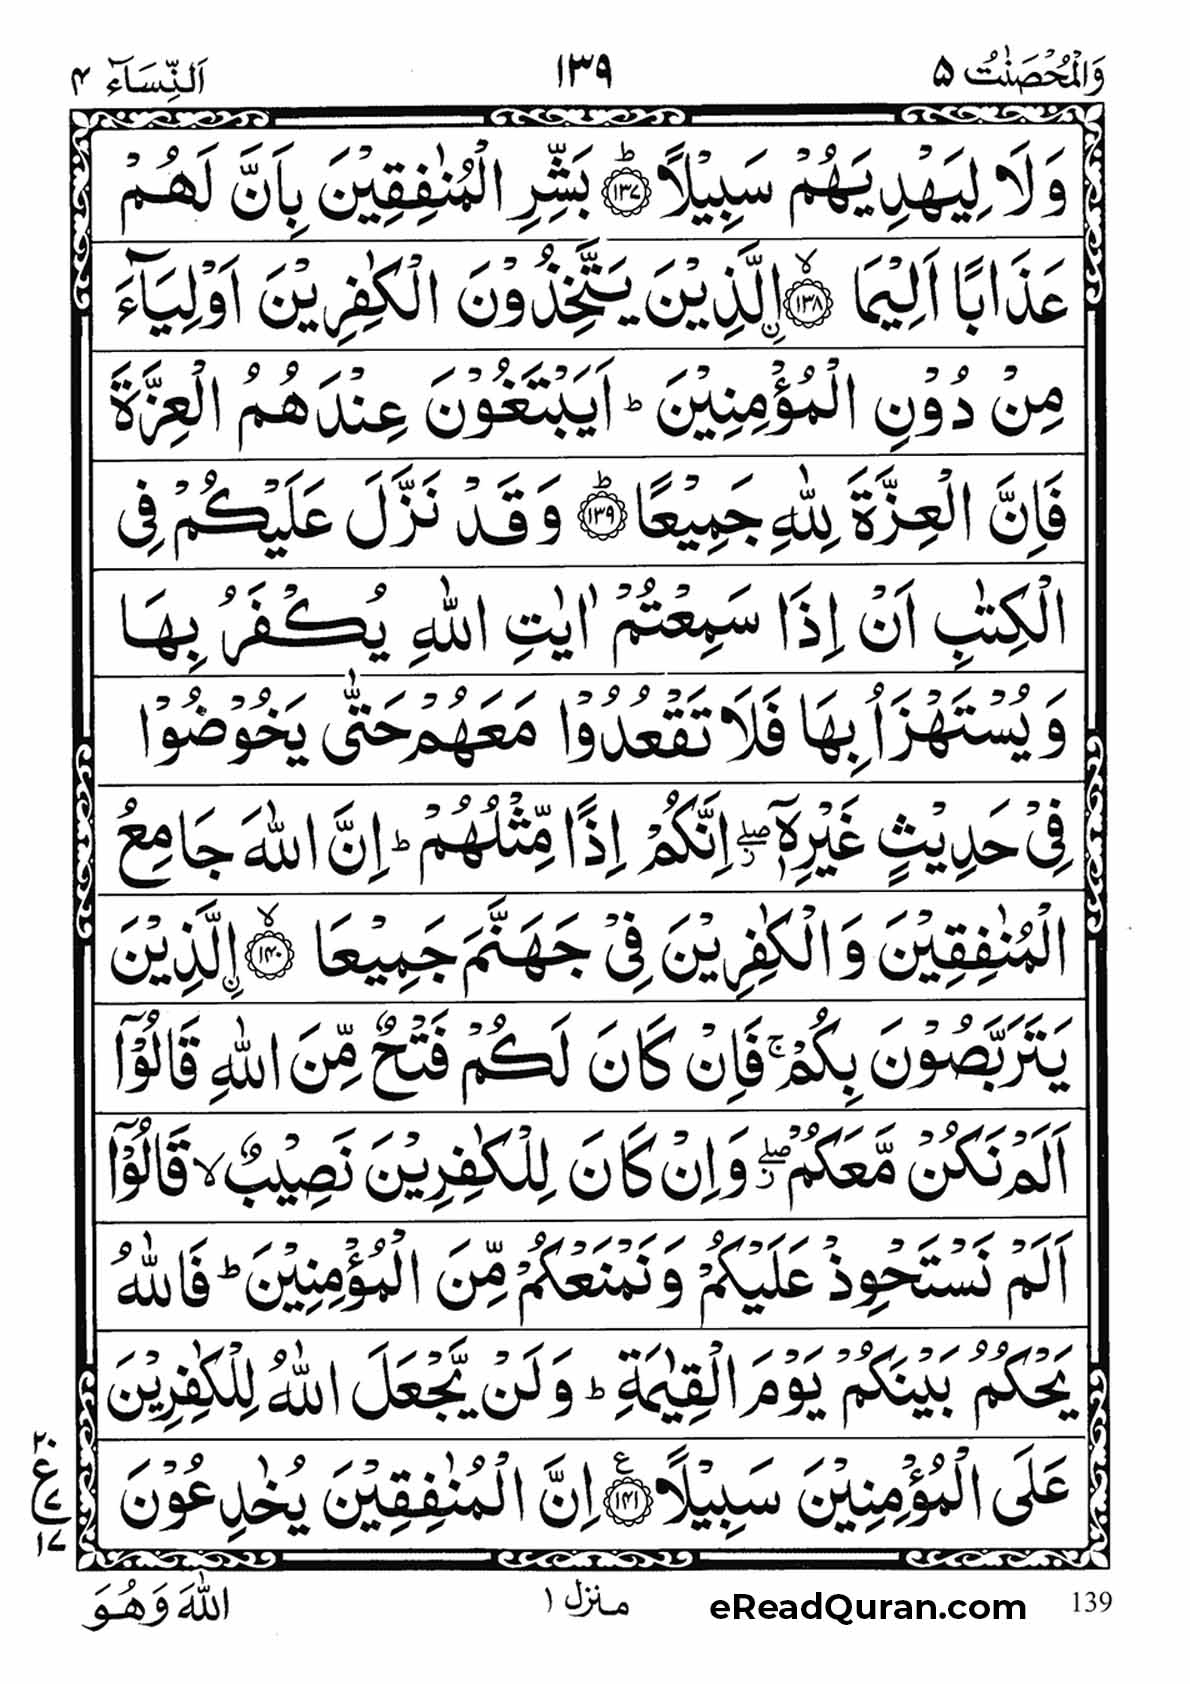 وَالْمُحْصَنٰتُ ۵ ۱۳۹ اَلنِّسَآء ۴
وَلَا لِیَهْدِیَهُمْ سَبِیْلًا ؕ‏﴿۱۳۷﴾ بَشِّرِ الْمُنٰفِقِیْنَ بِاَنَّ لَهُمْ
عَذَابًا اَلِیْمَا ۙ‏﴿۱۳۸﴾ ِ۟الَّذِیْنَ یَتَّخِذُوْنَ الْكٰفِرِیْنَ اَوْلِیَآءَ
مِنْ دُوْنِ الْمُؤْمِنِیْنَ ؕ اَیَبْتَغُوْنَ عِنْدَهُمُ الْعِزَّةَ
فَاِنَّ الْعِزَّةَ لِلّٰهِ جَمِیْعًا ؕ‏﴿۱۳۹﴾ وَقَدْ نَزَّلَ عَلَیْكُمْ فِی
الْكِتٰبِ اَنْ اِذَا سَمِعْتُمْ اٰیٰتِ اللّٰهِ یُكْفَرُ بِهَا
وَیُسْتَهْزَاُ بِهَا فَلَا تَقْعُدُوْا مَعَهُمْ حَتّٰی یَخُوْضُوْا
فِیْ حَدِیْثٍ غَیْرِهٖۤ ۖؗ اِنَّكُمْ اِذًا مِّثْلُهُمْ ؕ اِنَّ اللّٰهَ جَامِعُ
الْمُنٰفِقِیْنَ وَالْكٰفِرِیْنَ فِیْ جَهَنَّمَ جَمِیْعَا ۙ‏﴿۱۴۰﴾ ِ۟الَّذِیْنَ
یَتَرَبَّصُوْنَ بِكُمْ ۚ فَاِنْ كَانَ لَكُمْ فَتْحٌ مِّنَ اللّٰهِ قَالُوْۤا
اَلَمْ نَكُنْ مَّعَكُمْ ۖؗ وَاِنْ كَانَ لِلْكٰفِرِیْنَ نَصِیْبٌ ۙ قَالُوْۤا
اَلَمْ نَسْتَحْوِذْ عَلَیْكُمْ وَنَمْنَعْكُمْ مِّنَ الْمُؤْمِنِیْنَ ؕ فَاللّٰهُ
یَحْكُمُ بَیْنَكُمْ یَوْمَ الْقِیٰمَةِ ؕ وَلَنْ یَّجْعَلَ اللّٰهُ لِلْكٰفِرِیْنَ
عَلَی الْمُؤْمِنِیْنَ سَبِیْلًا ‏﴿۱۴۱﴾ ع اِنَّ الْمُنٰفِقِیْنَ یُخٰدِعُوْنَ
۲۰
ع ۷
۱۷
اللّٰهَ وَهُوَ منزل ۱ eReadQuran.com 139